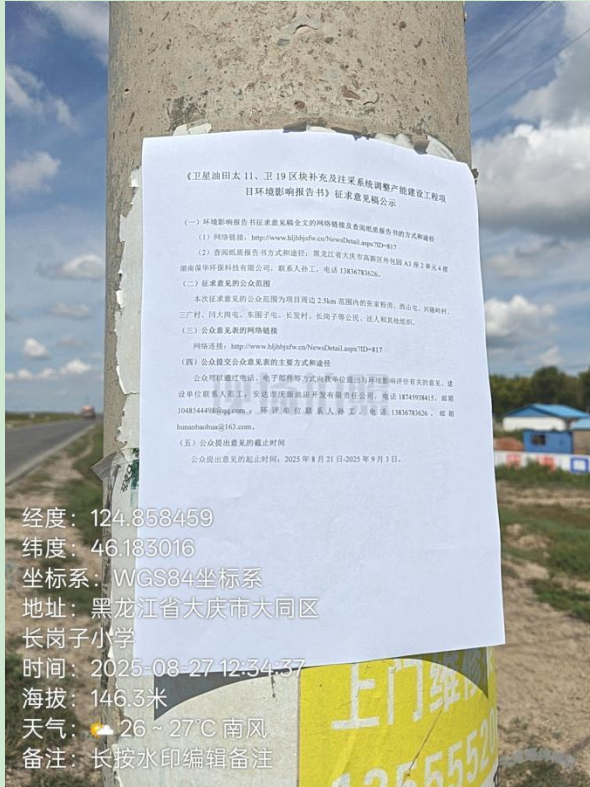 《卫星油田太 11、卫 19 区块补充及注采系统调整产能建设工程项
目环境影响报告书》征求意见稿公示
（一）环境影响报告书征求意见稿全文的网络链接及查阅纸质报告书的方式和途径
（1）网络链接：http://www.hljhbjxfw.cn/NewsDetail.aspx?ID=817
（2）查阅纸质报告书方式和途径：黑龙江省大庆市高新区外包园 A3 座 2 单元 4 楼
湖南葆华环保科技有限公司，联系人孙工，电话 13836783626。
（二）征求意见的公众范围
本次征求意见的公众范围为项目周边 2.5km 范围内的张家粉房、西山屯、兴隆岭村、
三广村、闫大岗屯、东围子屯、长发村、长岗子等公民、法人和其他组织。
（三）公众意见表的网络链接
网络连接：http://www.hljhbjxfw.cn/NewsDetail.aspx?ID=817
（四）公众提交公众意见表的主要方式和途径
公众可以通过电话、电子邮件等方式向我单位提出与环境影响评价有关的意见，建
设单位联系人范工，安达市庆新油田开发有限责任公司，电话 18745938415，邮箱
1048544498@qq.com；环评单位联系人孙工，电话 13836783626，邮箱
hunanbaohua@163.com。
（五）公众提出意见的截止时间
公众提出意见的起止时间：2025 年 8 月 21 日-2025 年 9 月 3 日。
经度：124.858459
纬度：46.183016
坐标系：WGS84坐标系
地址：黑龙江省大庆市大同区
长岗子小学
时间：2025-08-27 12:34:37
海拔：146.3米
天气：26～27℃ 南风
备注：长按水印编辑备注
上门维修